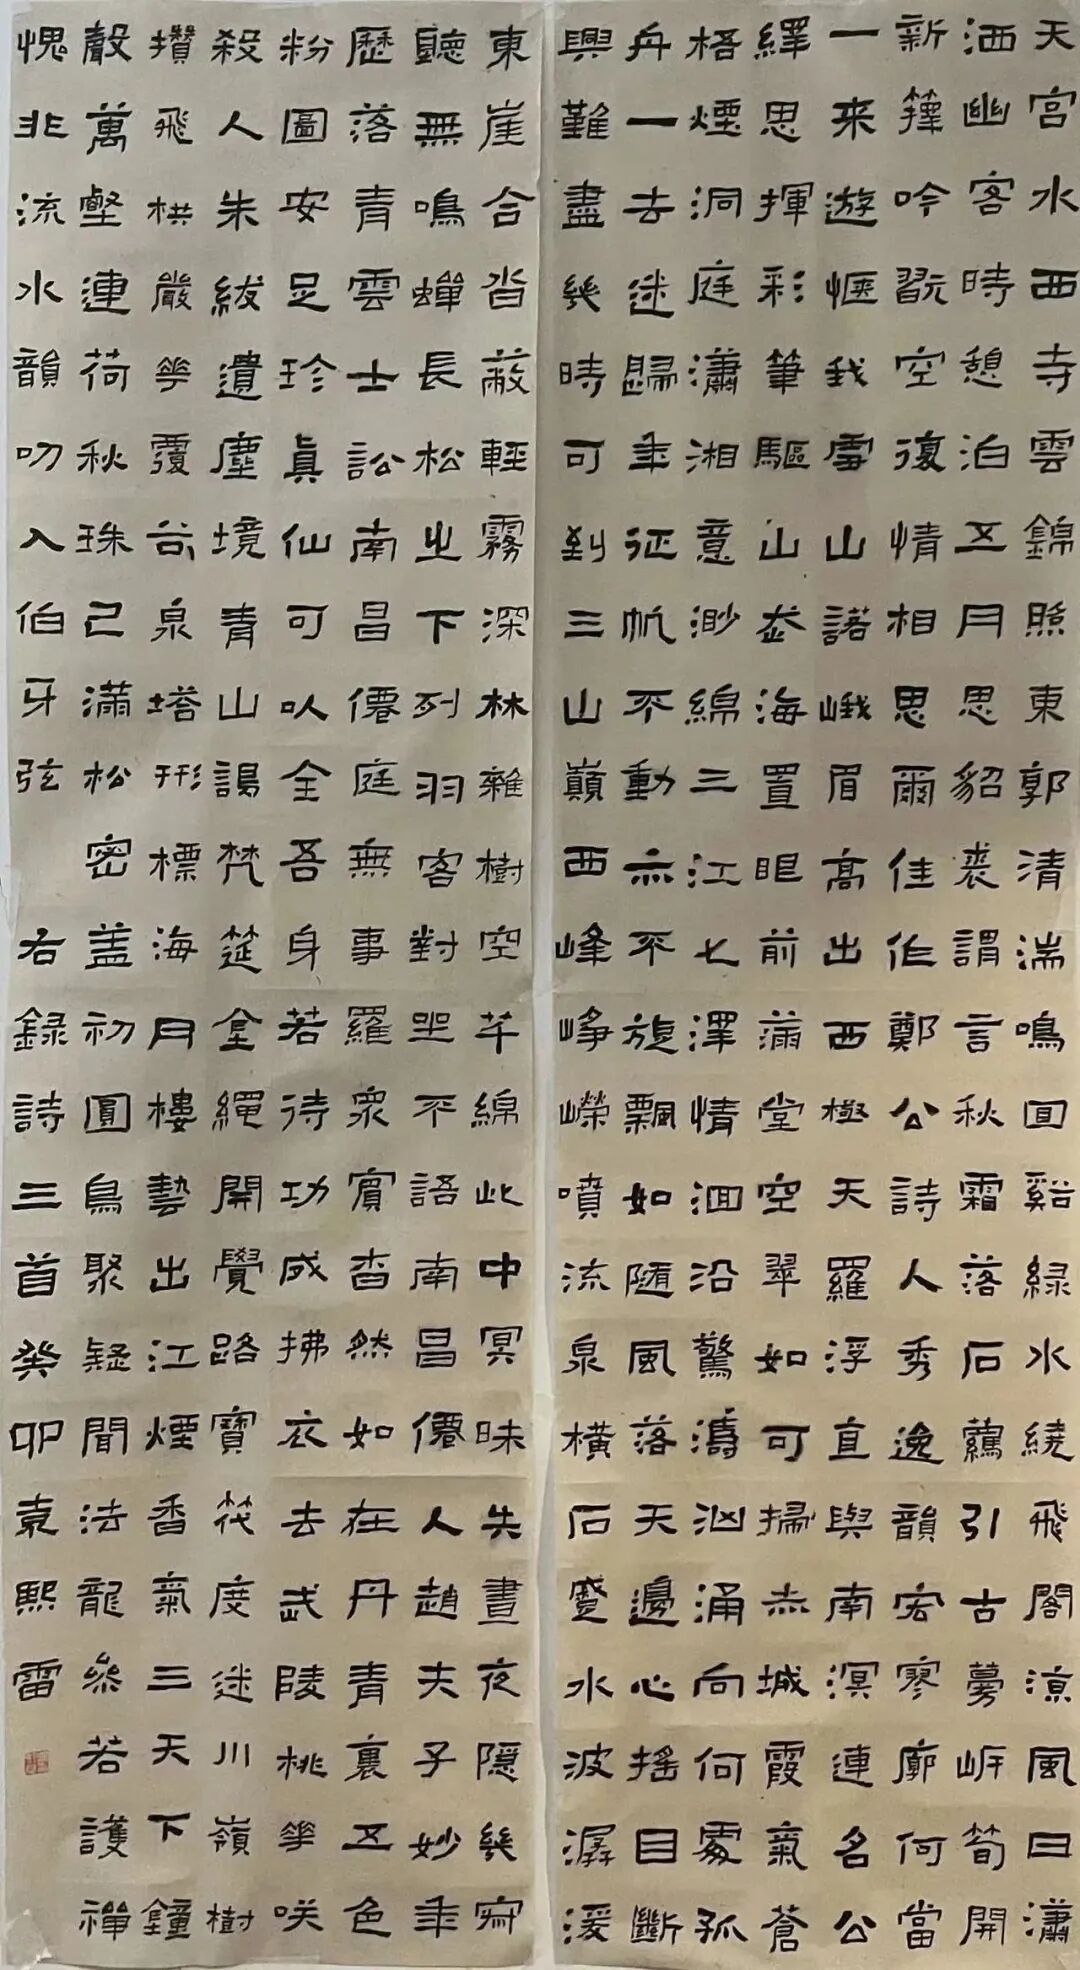 天宮水西寺雲錦照東郭清湍鳴回谿綠水繞飛閣涼風日瀟
洒幽客時憩泊五月思貂裘謂言秋霜落石蘿引古蔓岸筍開
新籜吟翫空復情相思爾佳作鄭公詩人秀逸韻宏寥廓何當
一来遊愜我雪山諾峨眉高出西極天羅浮直與南溟連名公
繹思揮彩筆驅山走海置眼前滿堂空翠如可掃赤城霞氣蒼
梧煙洞庭瀟湘意渺綿三江七澤情洄沿驚濤洶涌向何處孤
舟一去迷歸年征帆不動亦不旋飄如隨風落天邊心搖目斷
興難盡幾時可到三山巔西峰崢嶸噴流泉橫石蹙水波潺湲
東崖合沓蔽輕霧深林雜樹空芊綿此中冥昧失晝夜隱幾寂
聽無鳴蟬長松之下列羽客對坐不語南昌僊人趙夫子妙年
歷落青雲士訟南昌僊庭無事羅衆賓杳然如在丹青裏五色
粉圖安足珍真仙可以全吾身若待功成拂衣去武陵桃華咲
殺人朱紱遺塵境青山謁梵筵金繩開覺路寶筏度迷川嶺樹
攢飛栱巖華覆谷泉塔形標海月樓藝出江煙香氣三天下鐘
聲萬壑連荷秋珠已滿松密盖初圓鳥聚疑聞法龍參若護禪
愧非流水韻叨入伯牙弦 右錄詩三首癸卯袁熙雷